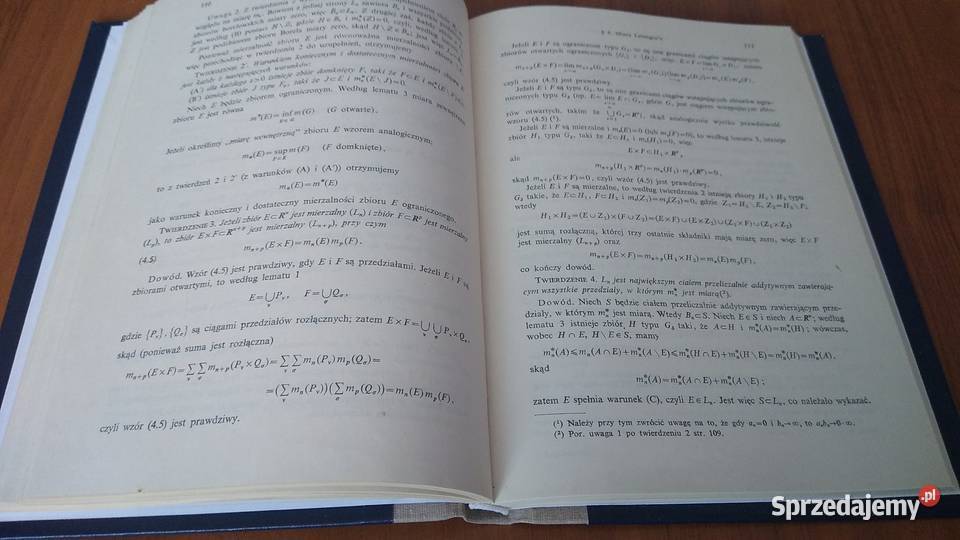 110
Uwaga 2. Z twierdzenia 2
względu na miarę
zbiorów borelowskich miary zero, więc
jest według (B) postaci H\Z, gdzie H∈Bₙ i m*ₙ(Z)=0, czyli, według
Z jest podzbiorem zboru Borela miary zero, skąd H\Z∈
Ponieważ mierzalność zbioru E jest równoważna mierzalności
więc przechodząc w twierdzeniu 2 do uzupełnień, otrzymujemy
TWIERDZENIE 2′. Warunkiem koniecznym i dostatecznym mierzalności zbioru E
jest każdy z następujących warunków:
(A′) dla każdego ε>0 istnieje zbiór domknięty F, taki że F⊂E i
(B′) istnieje zbiór J typu Fσ, taki że J⊂E i m*ₙ(E\J)=0.
Niech E będzie zbiorem ograniczonym. Według lematu 3 miara zewnętrzna
zbioru E jest równa
m*(E)= inf m(G) (G otwarte),
G⊃E
Jeżeli określimy „miarę wewnętrzną” zbioru E wzorem analogicznym:
m⁎(E)= sup m(F) (F domknięte),
F⊂E
to z twierdzeń 2 i 2′ (z warunków (A) i (A′)) otrzymujemy
m⁎(E)=m*(E)
jako warunek konieczny i dostateczny mierzalności zbioru E ograniczonego.
TWIERDZENIE 3. Jeżeli zbiór E⊂Rⁿ jest mierzalny (Lₙ) i zbiór F⊂Rᵖ jest mierzalny
(Lₚ), to zbiór E×F⊂Rⁿ⁺ᵖ jest mierzalny (Lₙ₊ₚ), przy czym
(4.5) mₙ₊ₚ(E×F)=mₙ(E)mₚ(F).
Dowód. Wzór (4.5) jest prawdziwy, gdy E i F są przedziałami. Jeżeli E i F są
zbiorami otwartymi, to według lematu 1
E=⋃Pᵥ, F=⋃Qσ,
ν σ
gdzie {Pᵥ}, {Qσ} są ciągami przedziałów rozłącznych; zatem E×F=⋃⋃Pᵥ×Qσ,
ν σ
skąd (ponieważ suma jest rozłączna)
mₙ₊ₚ(E×F)=∑∑mₙ₊ₚ(Pᵥ×Qσ)=∑∑mₙ(Pᵥ)mₚ(Qσ)=
ν σ ν σ
=(∑mₙ(Pᵥ))(∑mₚ(Qσ))=mₙ(E)mₚ(F),
ν σ
czyli wzór (4.5) jest prawdziwy.
111
Jeżeli E i F są ograniczone typu Gδ, to są one granicami ciągów zstępujących
zbiorów otwartych ograniczonych
czyli wzór (4.5) jest prawdziwy.
Jeżeli E i F są typu Gδ, to są one granicami ciągów wstępujących zbiorów ogra-
niczonych typu Gδ
rów otwartych, takim że ⋃Gᵥ=Rⁿ), skąd analogicznie wynika prawdziwość
wzoru (4.5) (¹).
Jeżeli E i F są mierzalne i mₙ(E)=0 (lub mₚ(F)=0), to według lematu 3, istnieje
zbiór H₁ typu Gδ, taki że E⊂H₁ i mₙ(H₁)=0, więc
E×F⊂H₁×Rᵖ,
ale
mₙ₊ₚ(H₁×Rᵖ)=mₙ(H₁)·mₚ(Rᵖ)=0,
skąd mₙ₊ₚ(E×F)=0, czyli wzór (4.5) jest prawdziwy.
Jeżeli E i F są mierzalne, to według twierdzenia 2 istnieją zbiory H₁ i H₂ typu
Gδ takie, że E⊂H₁, F⊂H₂ i mₙ(Z₁)=mₚ(Z₂)=0, gdzie Z₁=H₁\E, Z₂=H₂\F;
wtedy
H₁×H₂=(E∪Z₁)×(F∪Z₂)=(E×F)∪(E×Z₂)∪(Z₁×F)∪(Z₁×Z₂)
jest sumą rozłączną, której trzy ostatnie składniki mają miarę zero, więc E×F
jest mierzalny (Lₙ₊ₚ) oraz
mₙ₊ₚ(E×F)=mₙ₊ₚ(H₁×H₂)=mₙ(E)mₚ(F),
co kończy dowód.
TWIERDZENIE 4. Lₙ jest największym ciałem przeliczalnie addytywnym zawierają-
cym wszystkie przedziały, w którym m*ₙ jest miarą(²).
Dowód. Niech S będzie ciałem przeliczalnie addytywnym zawierającym prze-
działy, w którym m*ₙ jest miarą. Wtedy Bₙ⊂S. Niech E∈S i niech A⊂Rⁿ; według
lematu 3 istnieje zbiór H typu Gδ taki, że A⊂H i m*ₙ(A)=m*ₙ(H); wówczas,
wobec H∩E, H\E∈S, mamy
m*ₙ(A)⩽m*ₙ(A∩E)+m*ₙ(A\E)⩽m*ₙ(H∩E)+m*ₙ(H\E)=m*ₙ(H)=m*ₙ(A),
skąd
m*ₙ(A)=m*ₙ(A∩E)+m*ₙ(A\E);
zatem E spełnia warunek (C), czyli E∈Lₙ. Jest więc S⊂Lₙ, co należało wykazać.
(¹) Należy przy tym zwrócić uwagę na to, że gdy aᵥ=0 i bᵥ→∞, to aᵥbᵥ→0·∞.
(²) Por. uwaga 1 po twierdzeniu 2 str. 109.
Sprzedajemy.pl